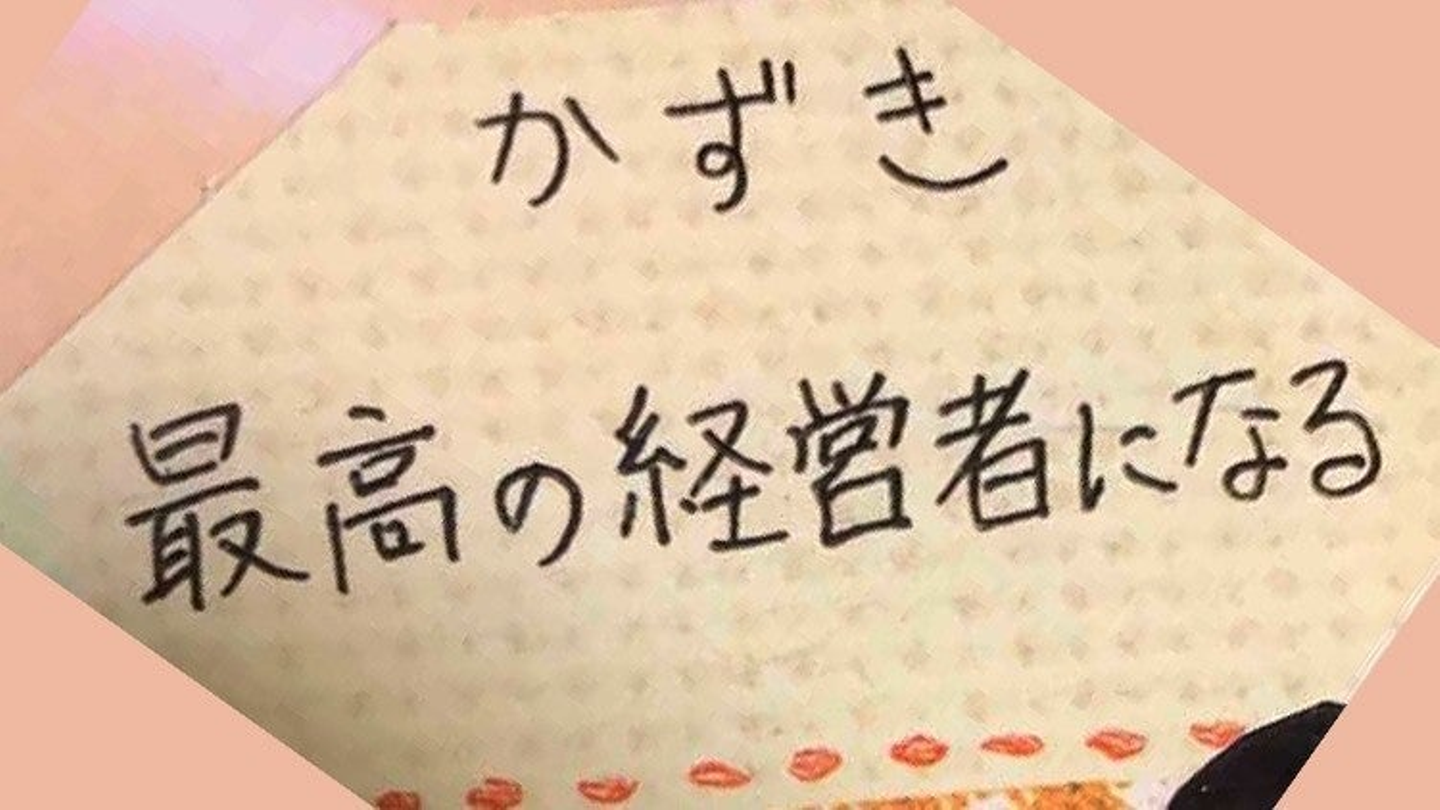 かずき
最高の経営者になる